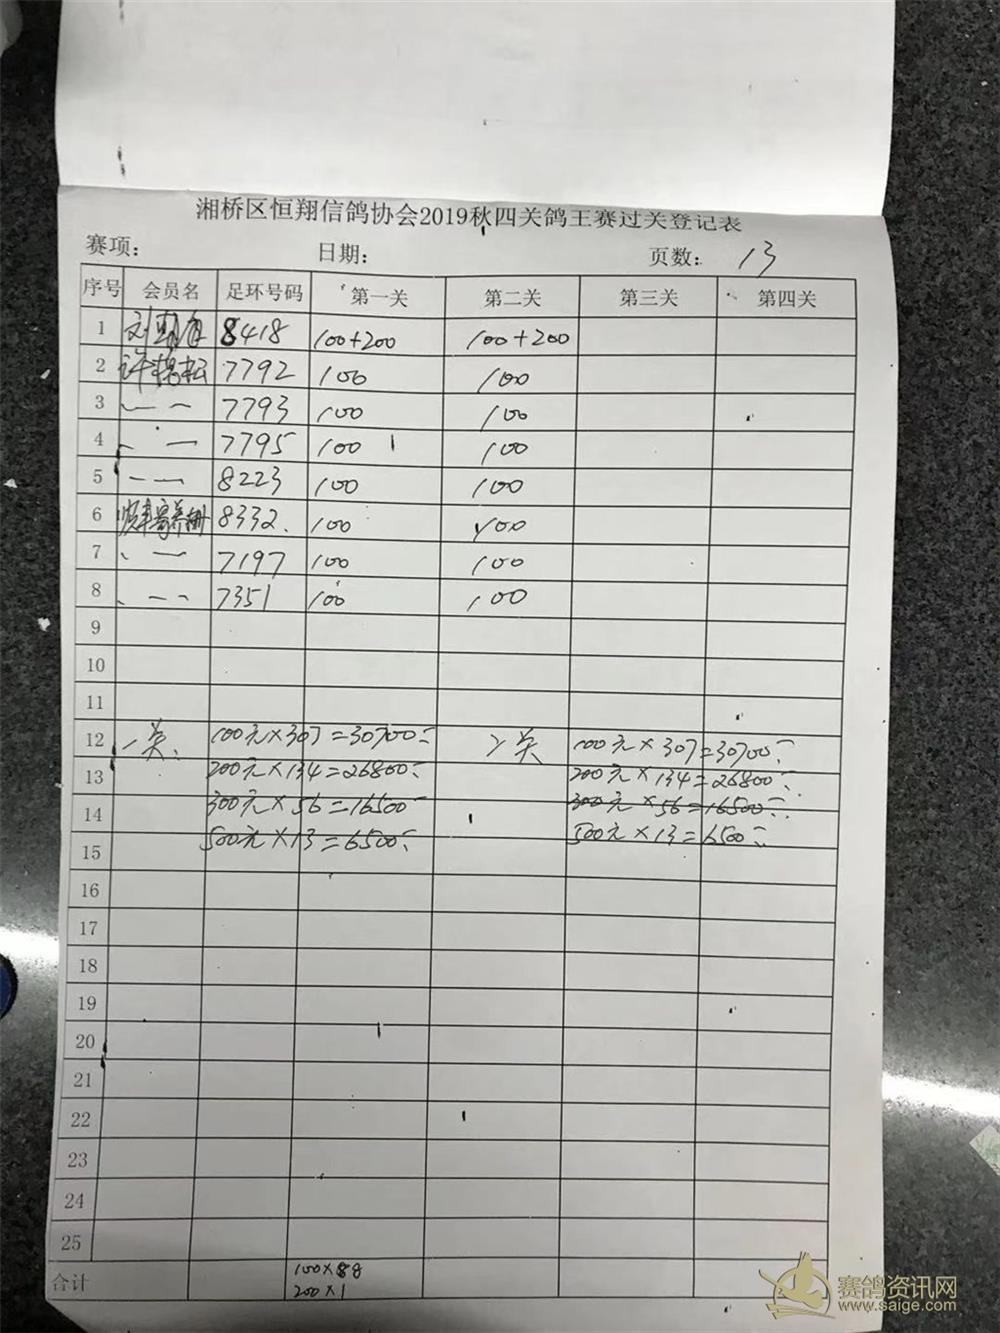 湘桥区恒翔信鸽协会2019秋四关鸽王赛过关登记表
赛项: 日期: 页数: 13
序号 会员名 足环号码 第一关 第二关 第三关 第四关
1 刘 8418 100+200 100+200
2 许 松 7792 100 100
3 7793 100 100
4 7795 100 100
5 8223 100 100
6 寄养棚 8332 100 100
7 7197 100 100
8 7351 100 100
9
10
11
12 一关、 100元×307=30700 二关 100元×307=30700
13 200元×134=26800 200元×134=26800
14 300元×56=16500 300元×56=16500
15 500元×13=6500 500元×13=6500
16
17
18
19
20
21
22
23
24
25
合计 100×8
200×1
赛鸽资讯网
www.saige.com